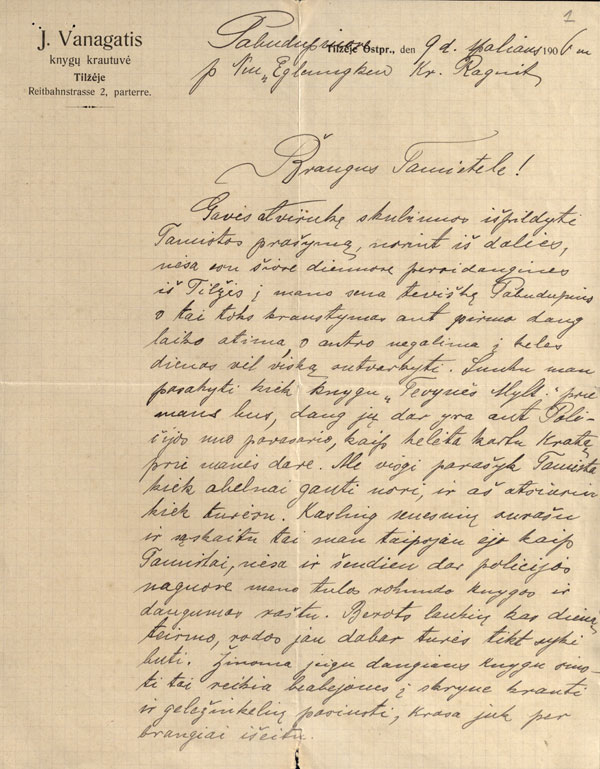 1
J. Vanagatis
knygų krautuvė
Tilžėje
Reitbahnstrasse 2, parterre.
Tilžėje Ostpr., den 9 d. 1906 m
p Egleningken Kr. Ragnit
Brangus Tamistele!
Gavęs atvirukę skubinuos išpildyti
Tamistos prašymą, norint iš dalies,
nėsa esu šiose dienose persidanginęs
iš Tilžės į mano sena teviškę
o tai toks kraustymas ant pirmo daug
laiko atima o antro negalima į keles
dienas vėl viską sutvarkyti. Sunku man
pasakyti kiek knygų „Tevynės Mylt." prie
manęs bus, daug jų dar yra ant Poli-
cijos nuo pavasario, kaip keleta kartu Kratą
prie manęs darė. Ale visgi parašyk Tamista
kiek abelnai gauti nori, ir aš atsiusiu
kiek turėsu. Kasling senesnių surašu
ir sąskaitu tai man taipojau ejo kaip
Tamistai, nėsa ir šendien dar policijos
naguose mano tulos knygos ir
daugumas raštu. Berots laukiu kas dieną
teismo, rodos jau dabar turės tikt syki
buti. Žinoma jeigu daugiaus knygu sius-
ti tai reikia beabejonės į skrynę krauti
ir geležinkeliu pasiusti, krasa juk per
brangiai išeitu.